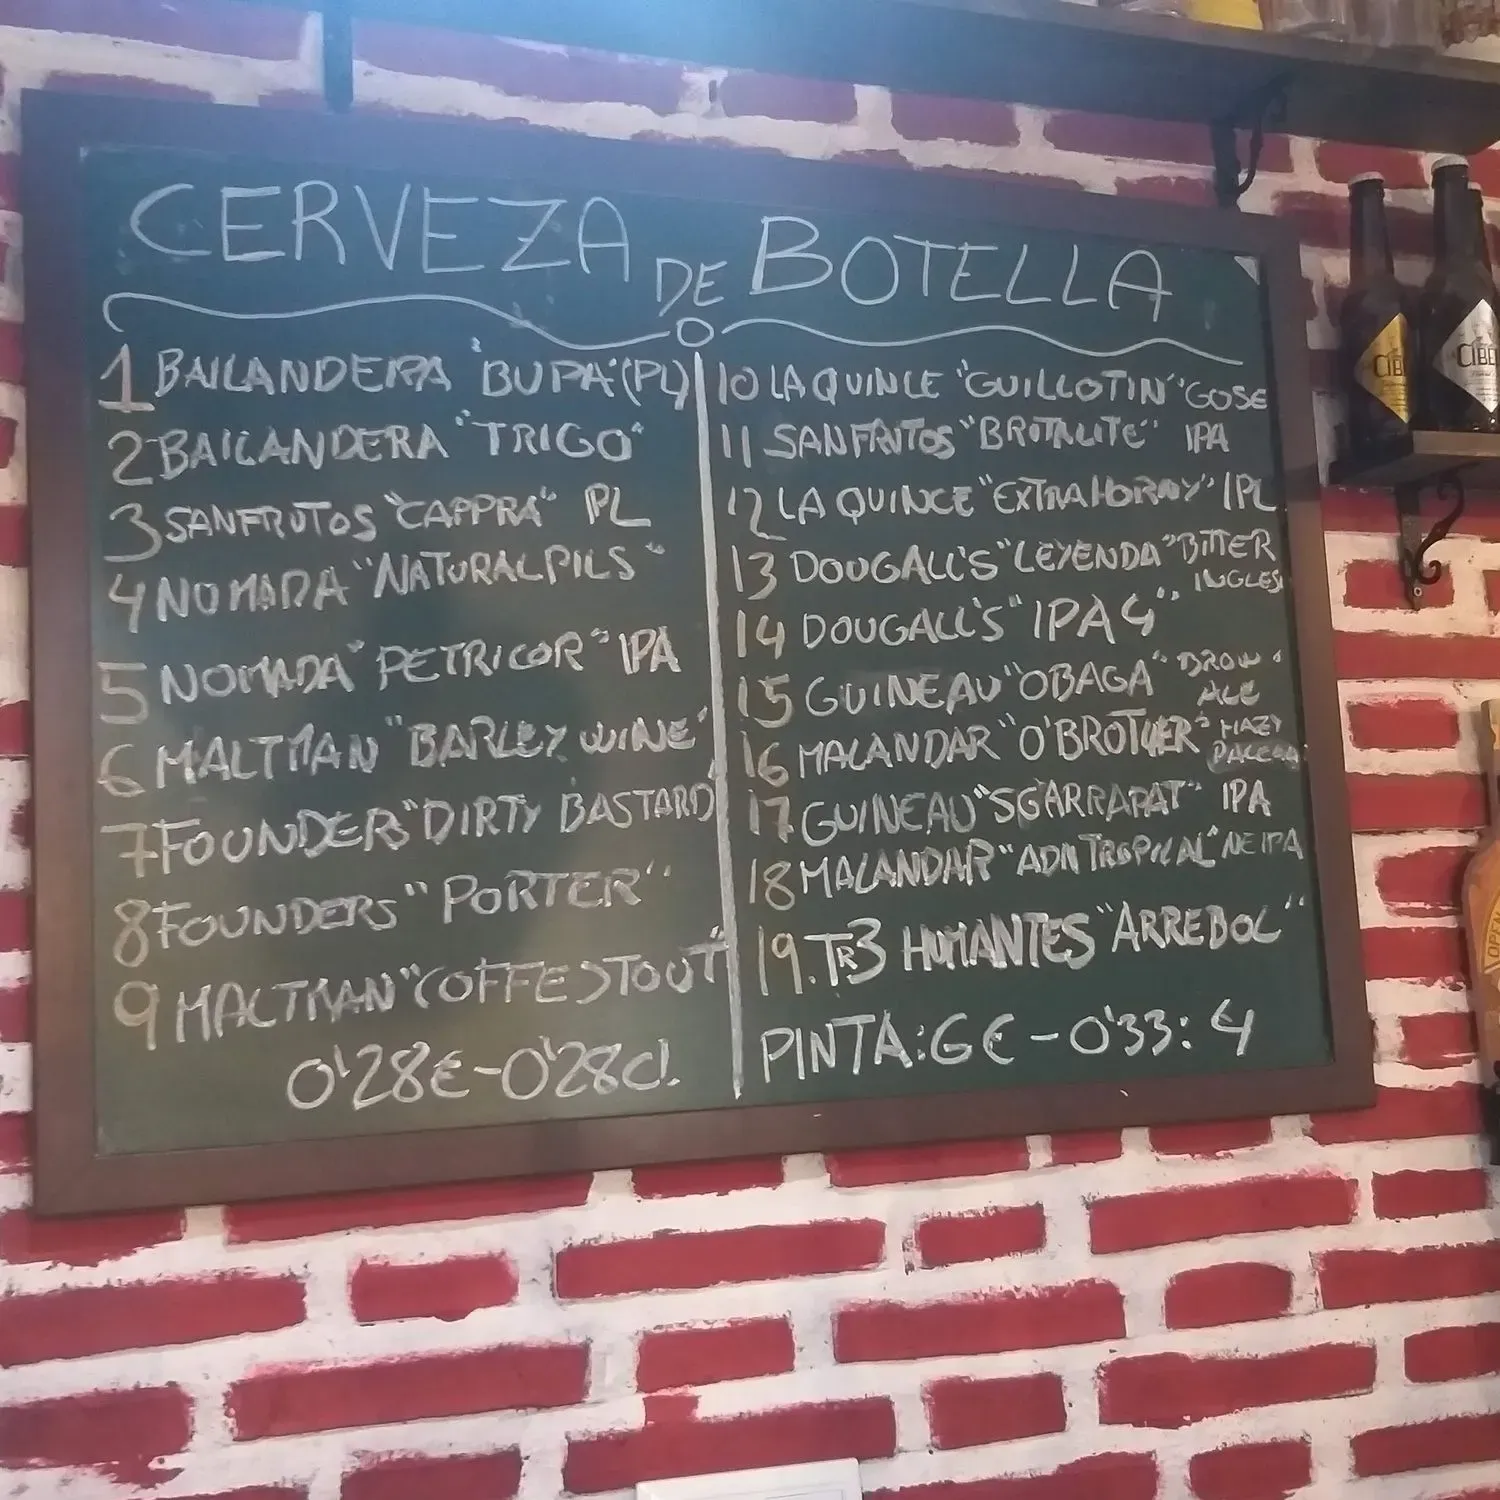 CERVEZA DE BOTELLA
1 BAILANDERA "BUPA" (PL)
2 BAILANDERA "TRIGO"
3 SANFRUTOS "CAPPRA" PL
4 NOMADA "NATURALPILS"
5 NOMADA "PETRICOR" IPA
6 MALTMAN "BARLEY WINE"
7 FOUNDERS "DIRTY BASTARD
8 FOUNDERS "PORTER"
9 MALTMAN "COFFE STOUT"
0'28€-0'28cl.
10 LA QUINCE "GUILLOTIN" GOSE
11 SANFRUTOS "BRUTALITE" IPA
12 LA QUINCE "EXTRAHORNY" IPL
13 DOUGALL'S "LEYENDA" BITTER
INGLESA
14 DOUGALL'S "IPA 4"
15 GUINEAU "OBAGA" BROW
ALE
16 MALANDAR "O'BROTHER" HAZY
17 GUINEAU "SGARRAPAT" IPA
18 MALANDAR "ADN TROPICAL" NEIPA
19. TR3 HUMANTES "ARREBOL"
PINTA: 6€ - 0'33: 4
CIBE
CIBE
OPEN